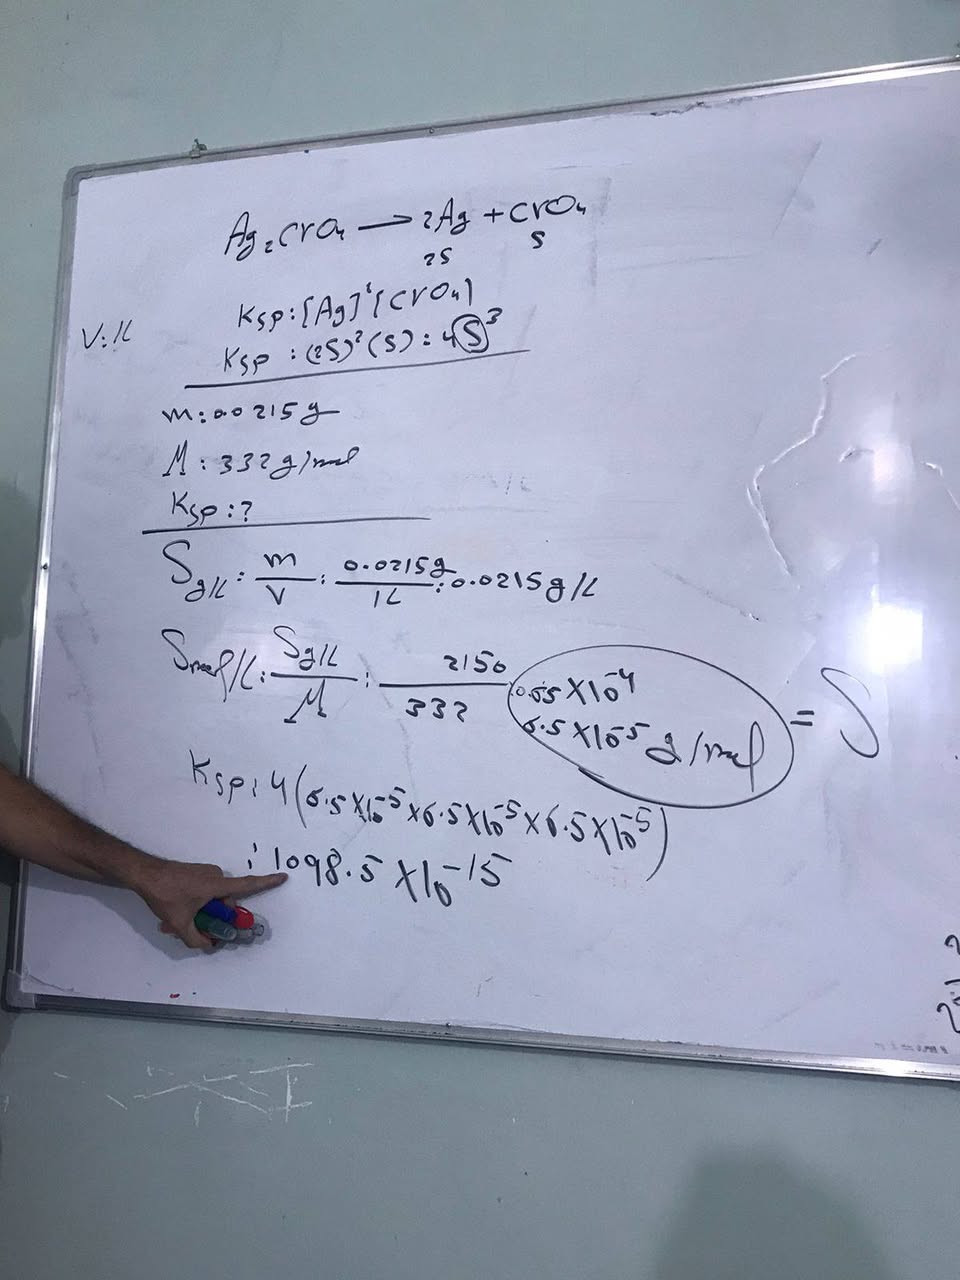 Ag₂CrO₄ → 2Ag + CrO₄
2S S
Ksp : [Ag]² [CrO₄]
V : 1L
Ksp : (2S)² (S) : 4S³
m : 0.0215g
M : 332 g/mol
Ksp : ?
S g/L : m/V : 0.0215g/1L : 0.0215g/L
S mol/L : S g/L / M : 2150/332
6.5 X 10⁻⁵ g/mol = S
Ksp : 4 (6.5 X 10⁻⁵ X 6.5 X 10⁻⁵ X 6.5 X 10⁻⁵)
: 1098.5 X 10⁻¹⁵